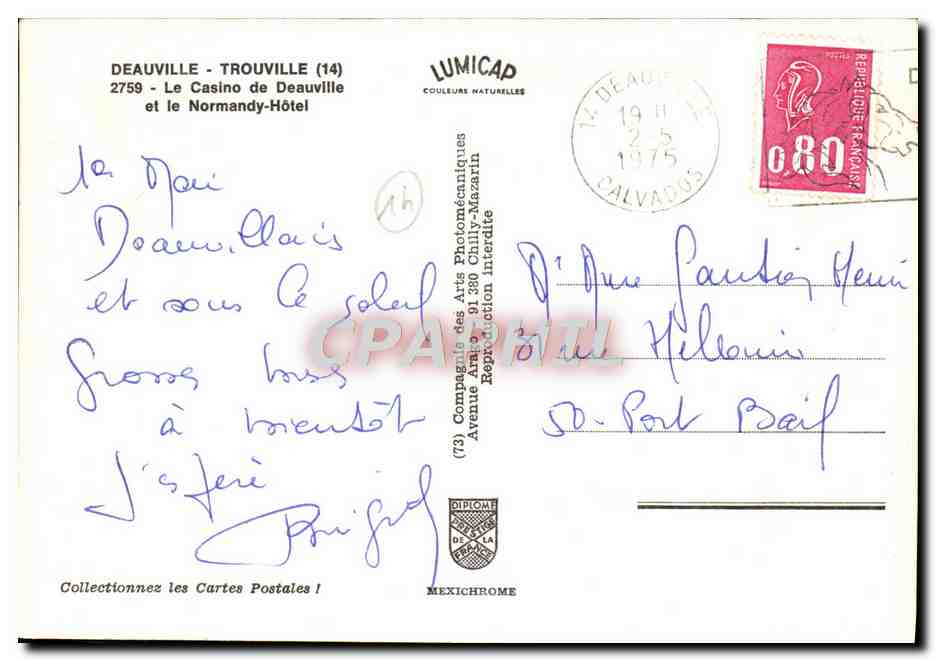 DEAUVILLE - TROUVILLE (14)
2759 - Le Casino de Deauville
et le Normandy-Hôtel
LUMICAP
COULEURS NATURELLES
14 DEAUVILLE 14
19 H
2-5
1975
CALVADOS
POSTES
REPUBLIQUE FRANÇAISE
0,80
D
1er Mai
Deauvillais
et sous le soleil
Grosses bises
à bientôt
J'espère
14
(73) Compagnie des Arts Photomécaniques
Avenue Arago - 91 380 Chilly-Mazarin
Reproduction interdite
Mr Mme Gautier Henri
rue
50 - Port Bail
CPAPHIL
DIPLOME
PRESTIGE
DE LA
FRANCE
MEXICHROME
Collectionnez les Cartes Postales !